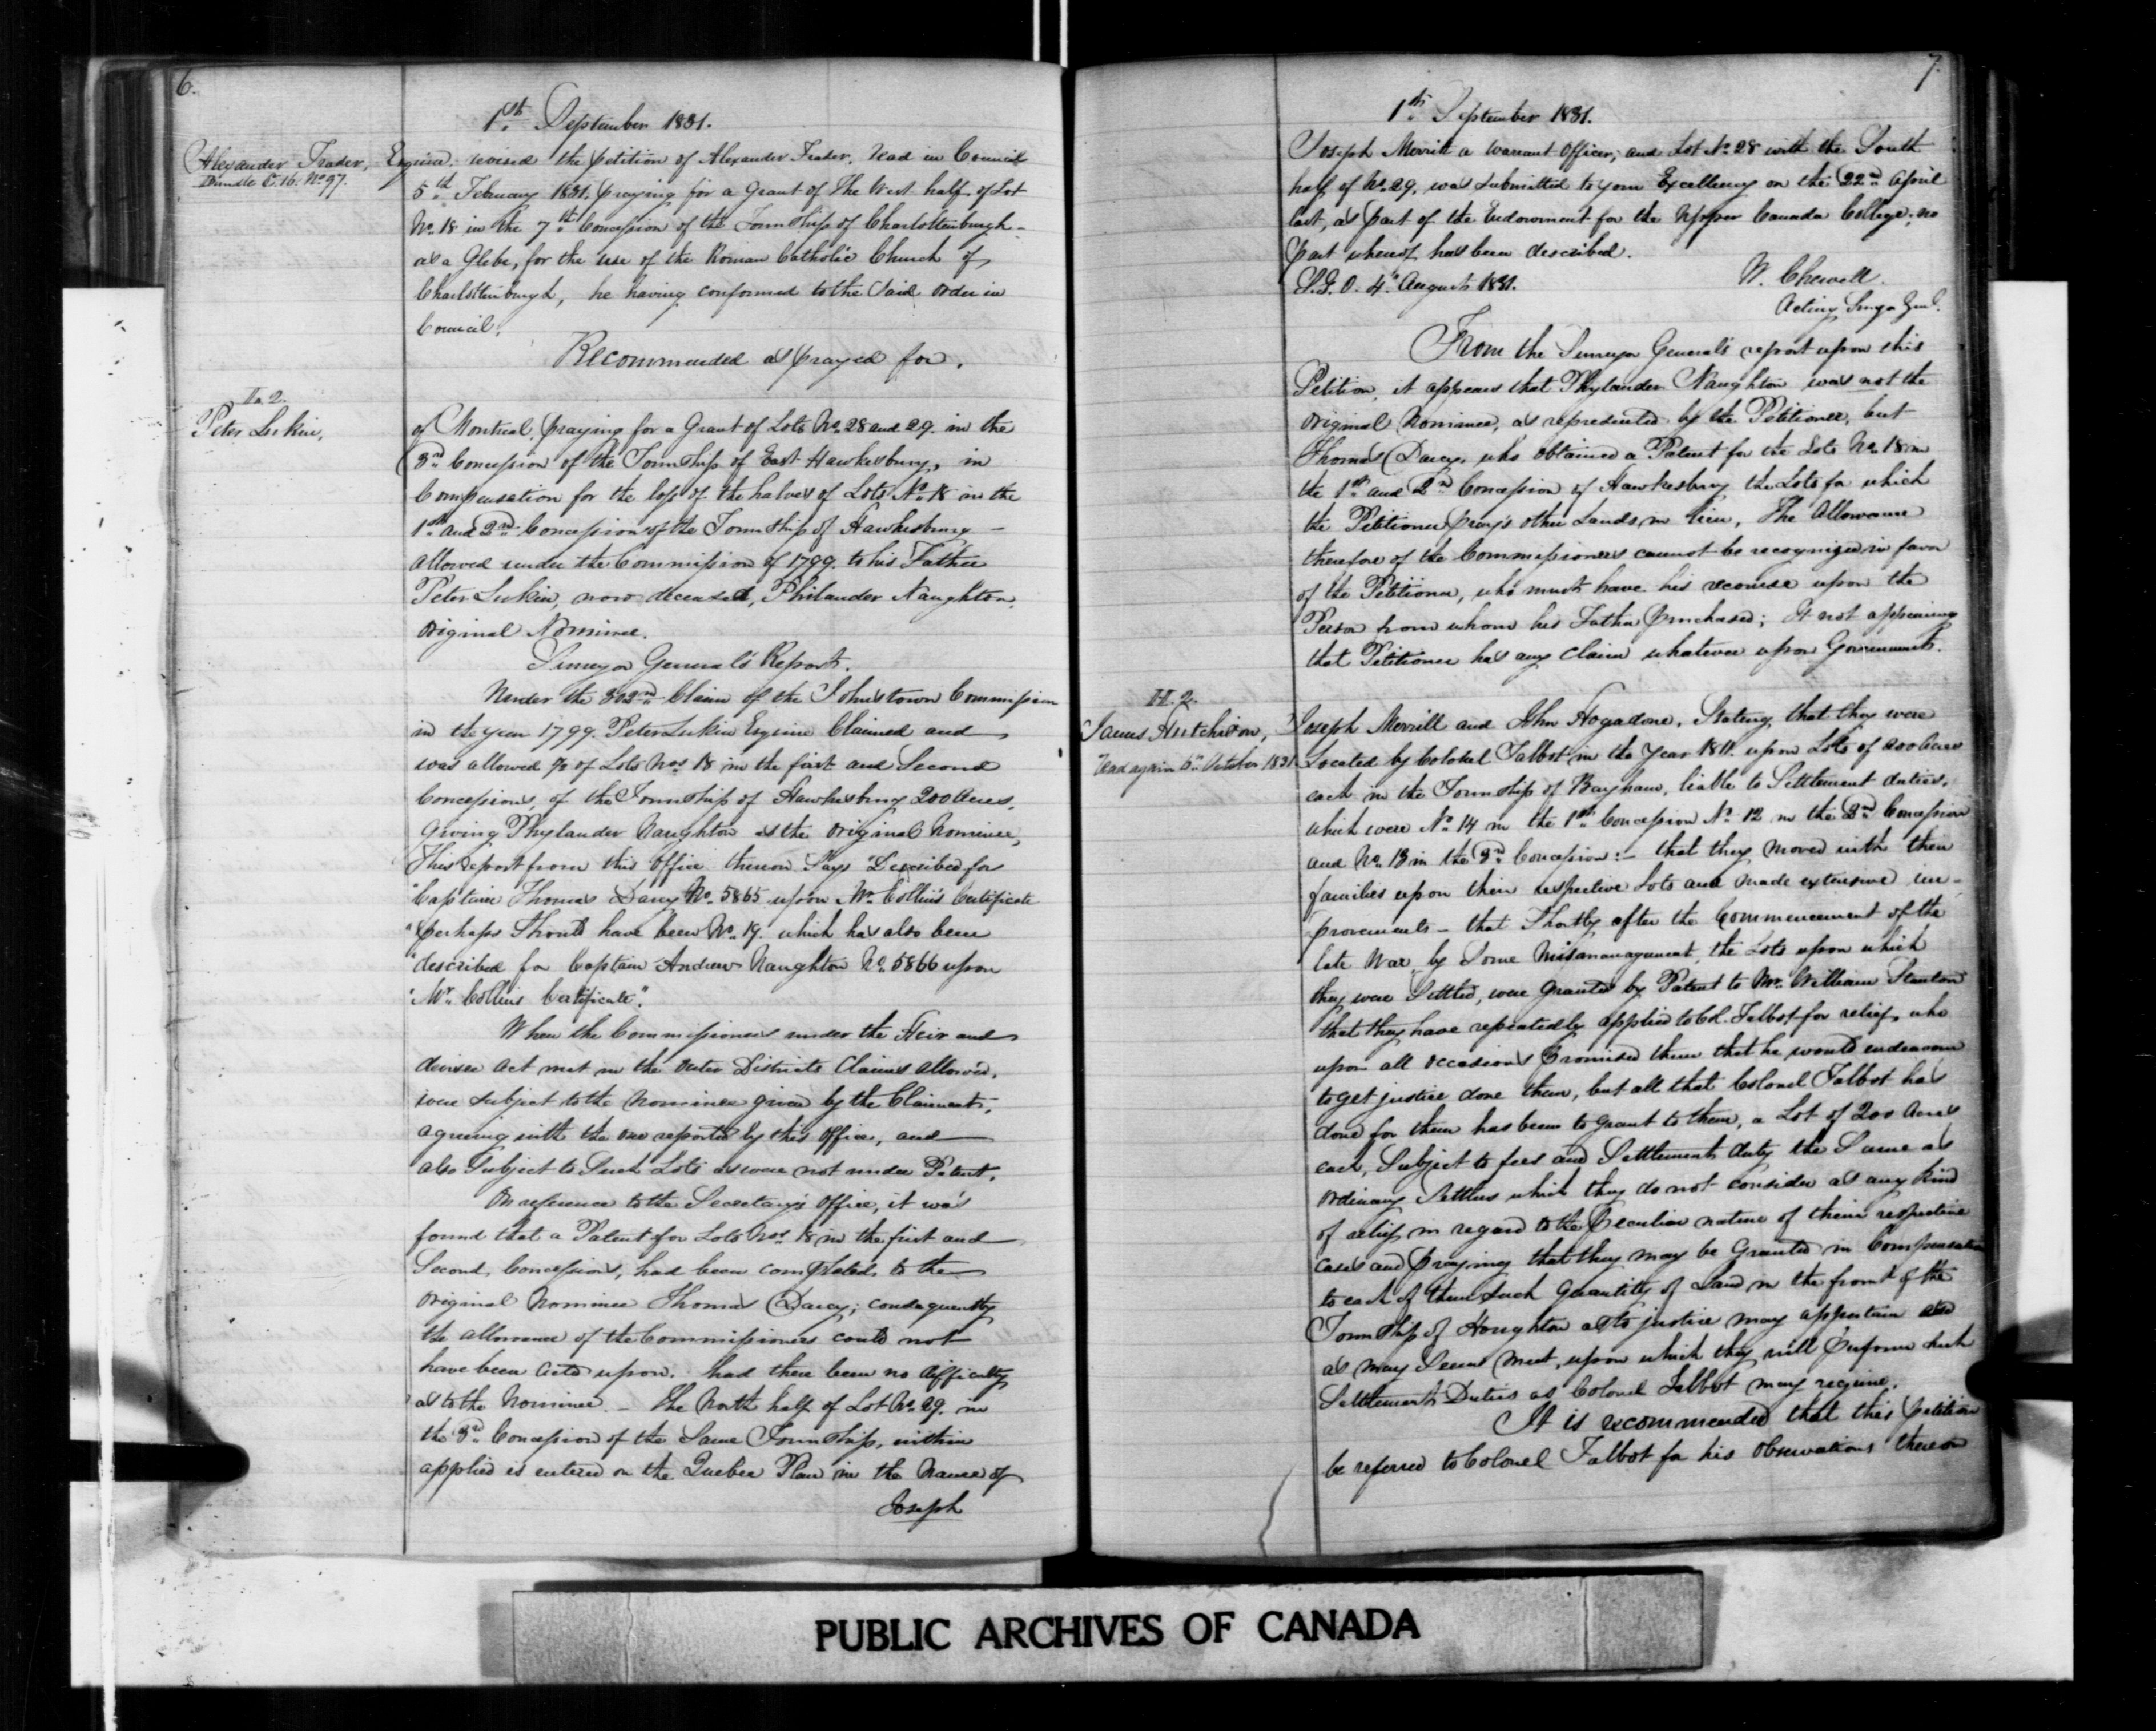 6.
1st September 1831.
Alexander Fraser, Esquire, revised the petition of Alexander Fraser, read in Council
Bundle C. 16. No 97.
5th February 1831, praying for a Grant of the West half of Lot
No. 18 in the 7th Concession of the Township of Charlottenburgh -
as a Glebe, for the use of the Roman Catholic Church of
Charlottenburgh, he having conformed to the Said order in
Council.
Recommended as prayed for.
No. 2.
Peter Lukin,
of Montreal, praying for a Grant of Lots No. 28 and 29. in the
3rd Concession of the Township of East Hawkesbury, in
Compensation for the loss of the halves of Lots No. 18 in the
1st and 2nd Concession of the Township of Hawkesbury -
allowed under the Commission of 1799. to his Father
Peter Lukin, now deceased, Philander Naughton,
Original Nominee.
Surveyor General's Report.
Under the 302nd Claim of the Johnstown Commission
in the year 1799. Peter Lukin Esquire Claimed and
was allowed ½ of Lots Nos 18 in the first and Second
Concessions, of the Township of Hawkesbury 200 Acres,
giving Phylander Naughton as the Original Nominee,
This report from this Office thereon Says "Described for
"Captain Thomas Darcy No. 5865 upon Mr. Collins Certificate
"perhaps Should have been No. 19. which has also been
"described for Captain Andrew Naughton No. 5866 upon
"Mr. Collins Certificate".
When the Commissioners under the Heir and
devisee Act met in the outer Districts Claims allowed,
were subject to the Nominee given by the Claimants,
agreeing with the one reported by this Office, and
also Subject to Such Lots as were not under Patent.
On reference to the Secretary's Office, it was
found that a Patent for Lots Nos. 18 in the first and
Second Concessions, had been completed to the
Original Nominee Thomas Darcy; consequently
the allowance of the Commissioners could not
have been acted upon. had there been no difficulty
as to the Nominee. - The North half of Lot No. 29. in
the 3rd Concession of the Same Township, within
applied is entered on the Quebec Plan in the Name of
Joseph
7.
1st September 1831.
Joseph Merrill a Warrant Officer; and Lot No 28 with the South
half of No. 29. was submitted to your Excellency on the 22nd April
last, as part of the Endowment for the Upper Canada College; no
part whereof has been described.
S.G.O. 4th August 1831.
W. Chewett.
Acting Survr Genl.
From the Surveyor General's report upon this
Petition, it appears that Phylander Naughton was not the
Original Nominee, as represented by the Petitioner, but
Thomas Darcy, who obtained a Patent for the Lots No. 18 in
the 1st and 2nd Concession of Hawkesbury the Lots for which
the Petitioner prays other Lands in lieu, The Allowance
therefore of the Commissioners cannot be recognized in favor
of the Petitioner, who must have his recourse upon the
Person from whom his Father purchased; It not appearing
that Petitioner has any Claim whatever upon Government.
H. 2.
James Hutchison, Joseph Merrill and John Hogadone. Stating that they were
Read again 6th October 1831 Located by Colonel Talbot in the Year 1811. upon Lots of 200 Acres
each in the Township of Bayham, liable to Settlement duties,
which were No 14 in the 1st Concession No. 12 in the 2nd Concession
and No. 13 in the 3rd Concession:- that they moved with their
families upon their respective Lots and made extensive im-
provements - that Shortly after the Commencement of the
late War, by Some Mismanagement, the Lots upon which
they were Settled, were granted by Patent to Mr. William Stanton
that they have repeatedly applied to Col. Talbot for relief, who
upon all occasions promised them that he would endeavour
to get justice done them, but all that Colonel Talbot has
done for them has been to grant to them, a Lot of 200 Acres
each, Subject to fees and Settlement duty the Same as
ordinary Settlers which they do not consider as any kind
of relief in regard to the peculiar nature of their respective
cases and praying that they may be Granted in Compensation
to each of them such quantity of Land in the front of the
Township of Houghton as to justice may appertain and
as may Seem Meet, upon which they will perform such
Settlement Duties as Colonel Talbot may require.
It is recommended that this petition
be referred to Colonel Talbot for his Observations thereon
PUBLIC ARCHIVES OF CANADA